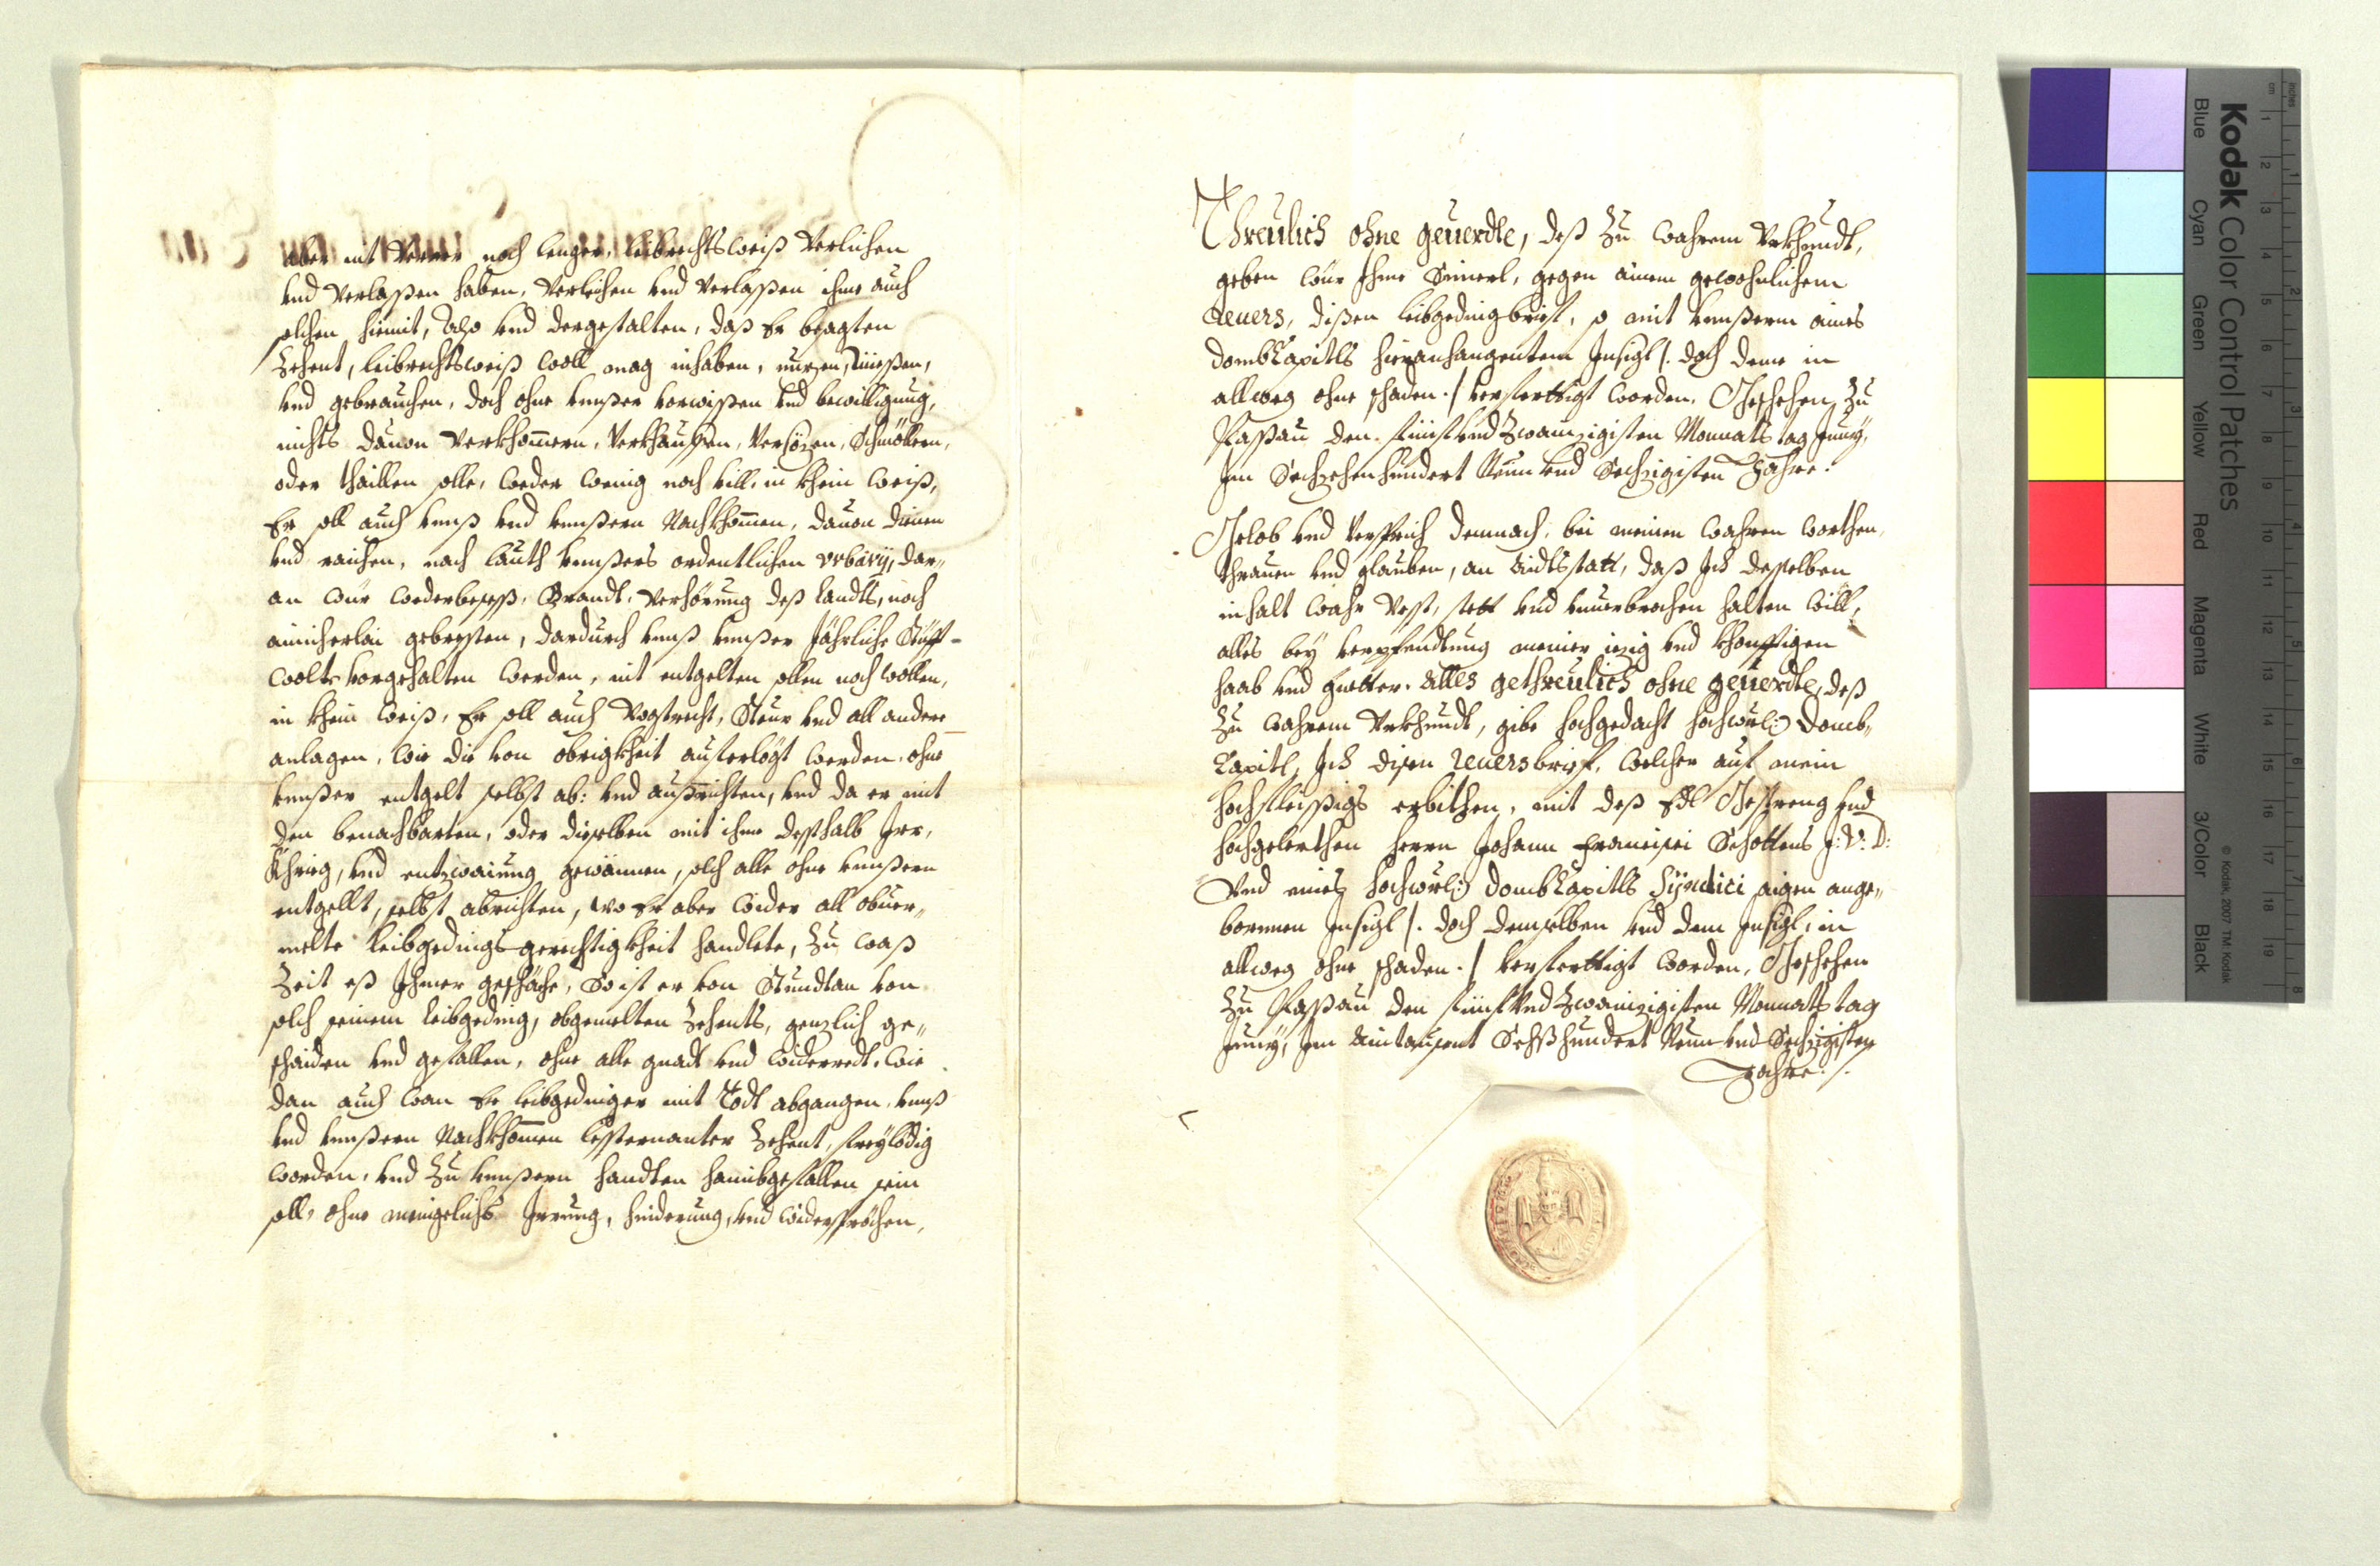 aber nit verrer noch lenger, leibrechtsweiß verlichen
vnd verlaßen haben, verleichen vnd verlaßen ihme auch
solchen hiemit, Also vnd dergestalten, daß Er besagten
Zehent, leibrechtsweiß woll mag inhaben, nuzen, nießen,
vnd gebrauchen, doch ohne vnnßer vorwißen vnd bewilligung,
nichts dauon verkhommern, verkhauffen, versözen, Schmöllern,
oder thaillen solle, weder wenig noch vill, in khein weiß,
Er soll auch vnnß vnd vnnßern Nachkhommen, dauon dienen
vnd raichen, nach lauth vnnßers ordentlichen vrbarij, dar„
an wür Brandt, verhörung deß Landts, noch
ainicherlai gebresten, dardurch vnnß vnnßer Jährliche Stüfft
wolte vorgehalten werden, nit entgelten sollen noch wollen,
in khein weiß, Er soll auch Vogtrecht, Steur vnd all andere
anlagen, wie die von obrigkheit auferlögt werden, ohne
vnnßer entgelt selbst ab: vnd außrichten, vnd da er mit
den benachbarten, oder dieselben mit ihme desthalb Irr,
Khrieg, vnd entzwaiung gewännen, solch alle ohne vnnßern
entgellt, selbst abrichten, wo Er aber wider all obuer„
melte Leibgedings gerechtigkheit handlete, zu waß
Zeit eß Jhmer geschäche, So ist er von Stundtan von
solch seinem Leibgeding, obgemelten Zehents, genzlich ge„
schaiden vnd gefallen, ohne alle gnadt vnd widerredt, wie
dan auch wan Er leibgedinger mit Todt abgangen, vnnß
vnd vnnßern Nachkhommen Zehent, freylödig
worden, vnd zu vnnßern handten haimbgefallen sein
soll, ohne meinigeliches Irrung, hinderung, vnd widerspröchen,
Threulich ohne geuerdte, deß zu wahrem Vrkhundt,
geben wür Ihme Simerl, gegen ainem gewohnlichem
Reuers, dißen leibgedingbrief, so mit vnnßerm aines
DombCapitls hieranhangentem Insigl /. doch deme in
allweg ohne schaden ./ verferttigt worden, Gheschehen zu
Paßau den fünf vnd Zwainzigisten Monnatstag Junÿ,
Im Sechzehenhundert Neun vnd Sechzigisten Jahre:
Gelob vnd versprich demnach, bei meinen wahren worthen,
thrauen vnd glauben, an Aidtsstatt, daß Ich desselben
inhalt wahr vest, stett vnd vnuerbrochen halten will,
alles bey verpfendtung meiner iezig vnd khonfftigen
haab vnd guetter. Alles gethreulich ohne geuerdte, deß
zu wahrem Vrkhundt, gibe hochgedacht hochwürl: Domb„
Capitl, Ich disen Reuersbrief, welcher auf mein
hochfleissigs erbithen, mit deß Edl Gestreng vnd
hochgelerthen Herrn Johann Francisci Schottens J: V: D:
Vnd eines hochwürl: DombCapitls Sÿndici aigen ange„
bornnen Insigl /. doch demselben vnd dem Insigl, in
allweg ohne schaden ./ verferttigt worden, Gheschehen
zu Paßau den fünf vnd Zwainzigisten Monnatstag
Junÿ, Im Aintausent Sechßhundert Neun vnd Sechzigisten
Jahre:/.
Kodak Color Control Patches
Blue Cyan Green Yellow Red Magenta White 3/Color Black
© Kodak, 2007 TM: Kodak
inches
cm
1 2 3 4 5 6 7 8
1 2 3 4 5 6 7 8 9 10 11 12 13 14 15 16 17 18 19